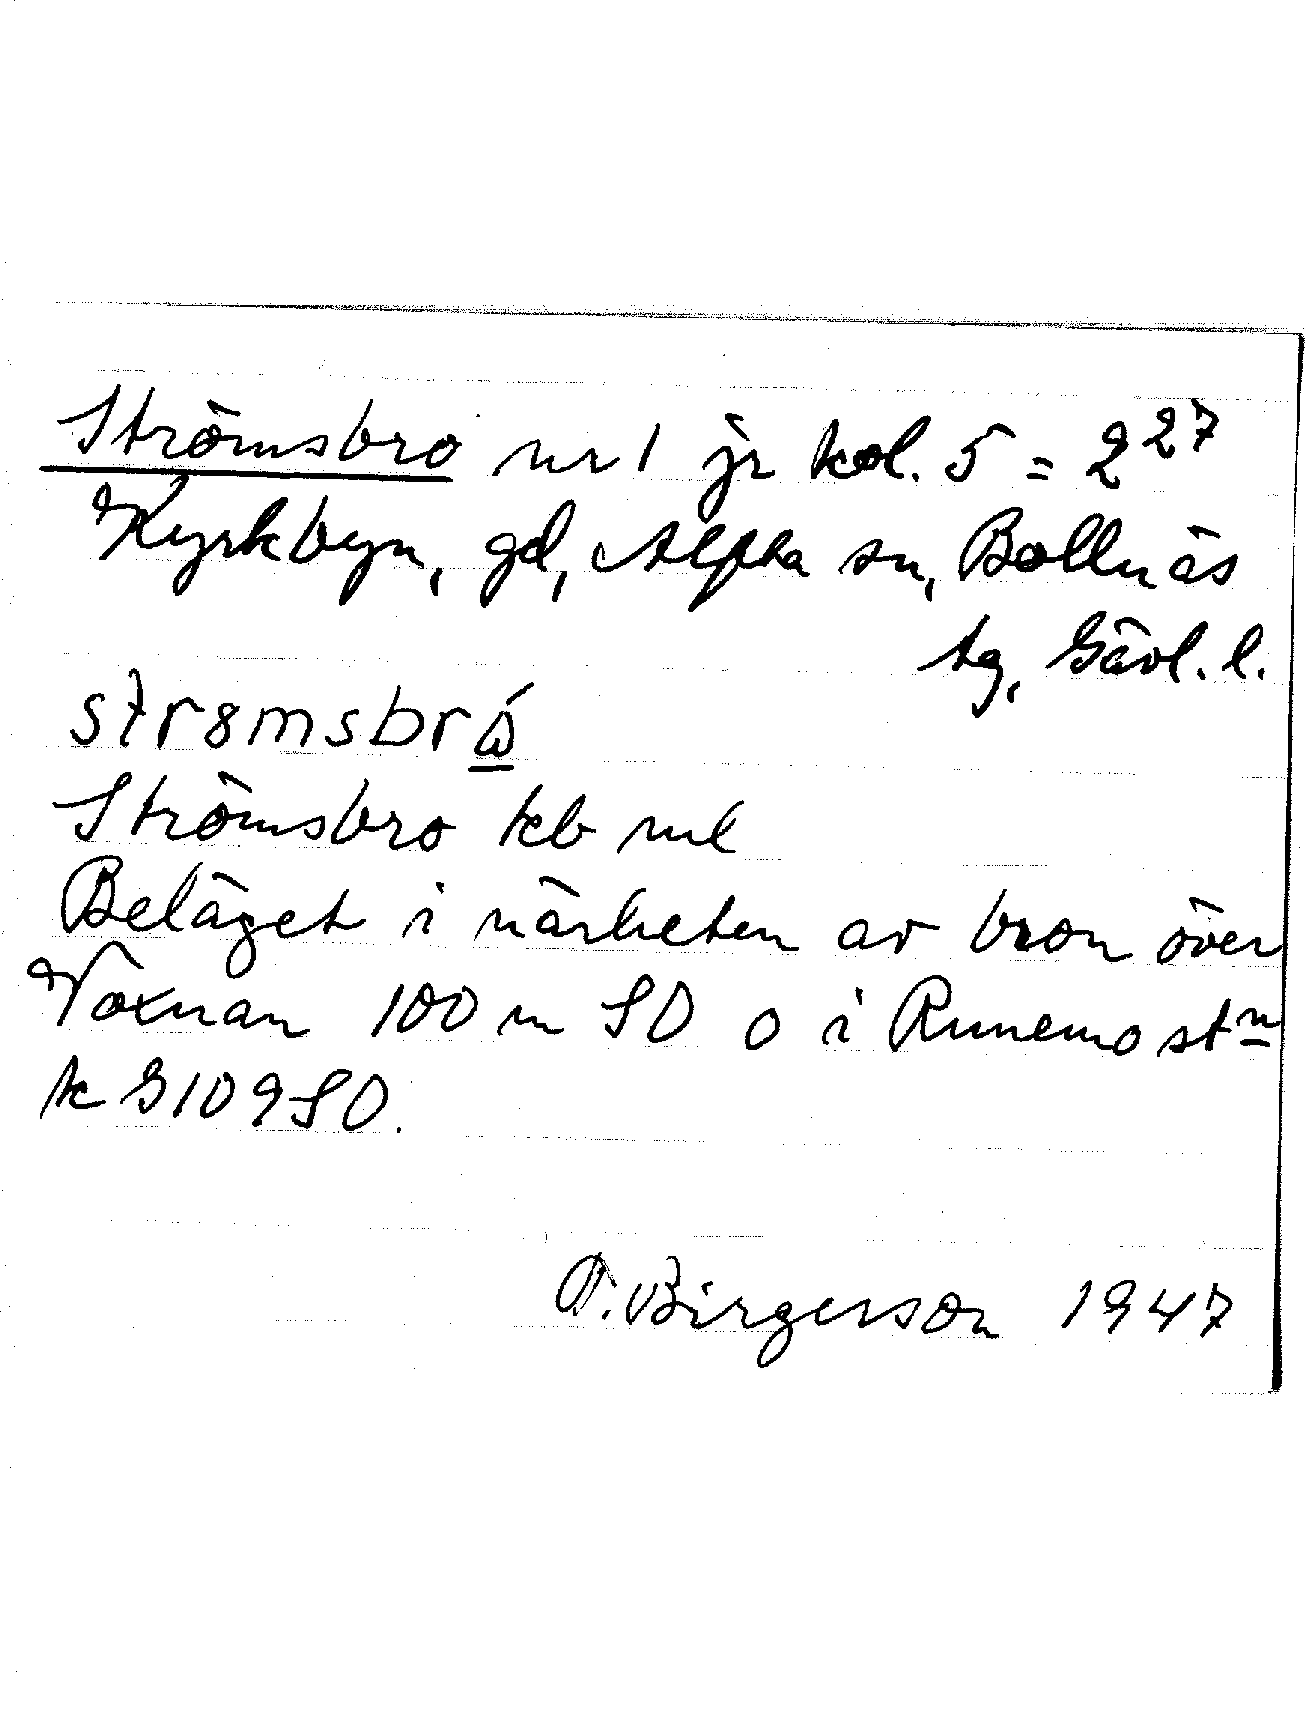 Strömsbro nr 1 jr kol. 5 = 2 27
Kyrkbyn, gd, Alfta sn, Bollnäs
tg, Gävl. l.
strømsbrώ
Strömsbro kb ml
Beläget i närheten av bron över
Voxnan 100 m SO o i Runemo stn
k 9109SO.
T. Birgerson 1947